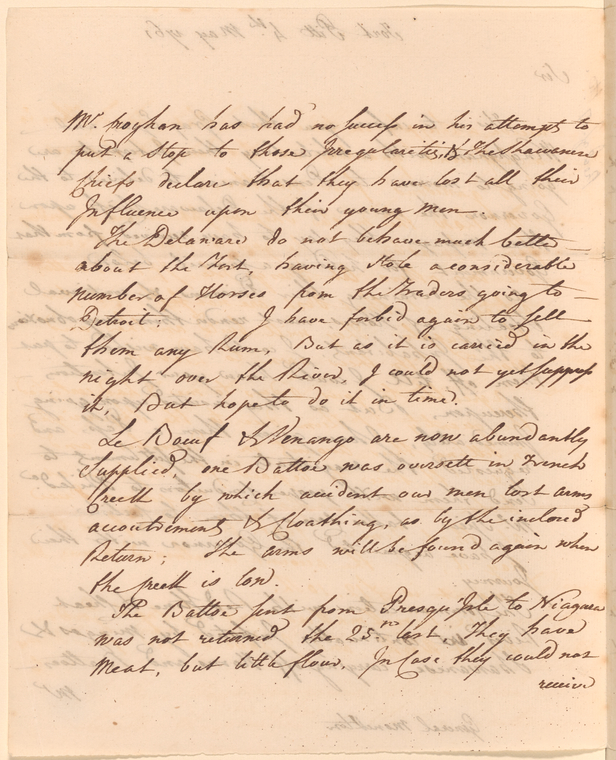 Mr. Croghan has had no success in his attempt to
put a Stop to those Irregularities, & The Shawanese
Chiefs declare that they have lost all their
Influence upon their young men.
The Delaware do not behave much better
about the Fort, having Stole a considerable
number of Horses from the Traders going to
Detroit; I have forbid again to sell
them any Rum, But as it is carried in the
night over the River, I could not yet suppress
it, But hope to do it in time.
Le Boeuf & Venango are now abundantly
Supplied, one Battoe was oversett in French
Creek by which accident our men lost arms
accoutrements & Cloathing, as by the inclosed
Return; The arms will be found again when
the Creek is low.
The Battoe sent from Presqu'Isle to Niagara
was not returned the 25th last, They have
Meat, but little flour, In Case they could not
receive